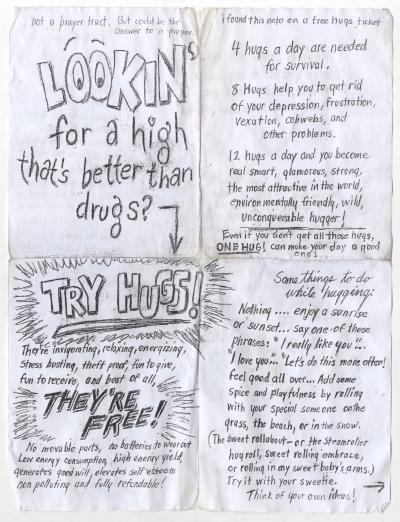 not a prayer tract. But could be the
answer to a prayer.
LOOKIN'
for a high
that's better than
drugs?
I found this note on a free hugs ticket
4 hugs a day are needed
for survival.
8 Hugs help you to get rid
of your depression, frustration,
vexation, cobwebs, and
other problems.
12 hugs a day and you become
real smart, glamorous, strong,
the most attractive in the world,
environmentally friendly, wild,
unconquerable hugger!
Even if you don't get all those hugs,
ONE HUG! can make your day a good
one!
TRY HUGS!
They're invigorating, relaxing, energizing,
Stress busting, theft proof, fun to give,
fun to receive, and best of all,
THEY'RE
FREE!
No movable parts, no batteries to wear out
Low energy consumption, high energy yield,
generates good will, elevates self esteem
non polluting and fully refundable!
Some things to do
while hugging:
Nothing.... enjoy a sunrise
or sunset... say one of those
phrases: "I really like you"..
"I love you"... "Let's do this more often!
feel good all over... Add some
Spice and playfulness by rolling
with your special someone on the
grass, the beach, or in the snow.
(The sweet rollabout - or the steamroller
hug roll, sweet rolling embrace,
or rolling in my sweet baby's arms.)
Try it with your sweetie.
Think of your own ideas!